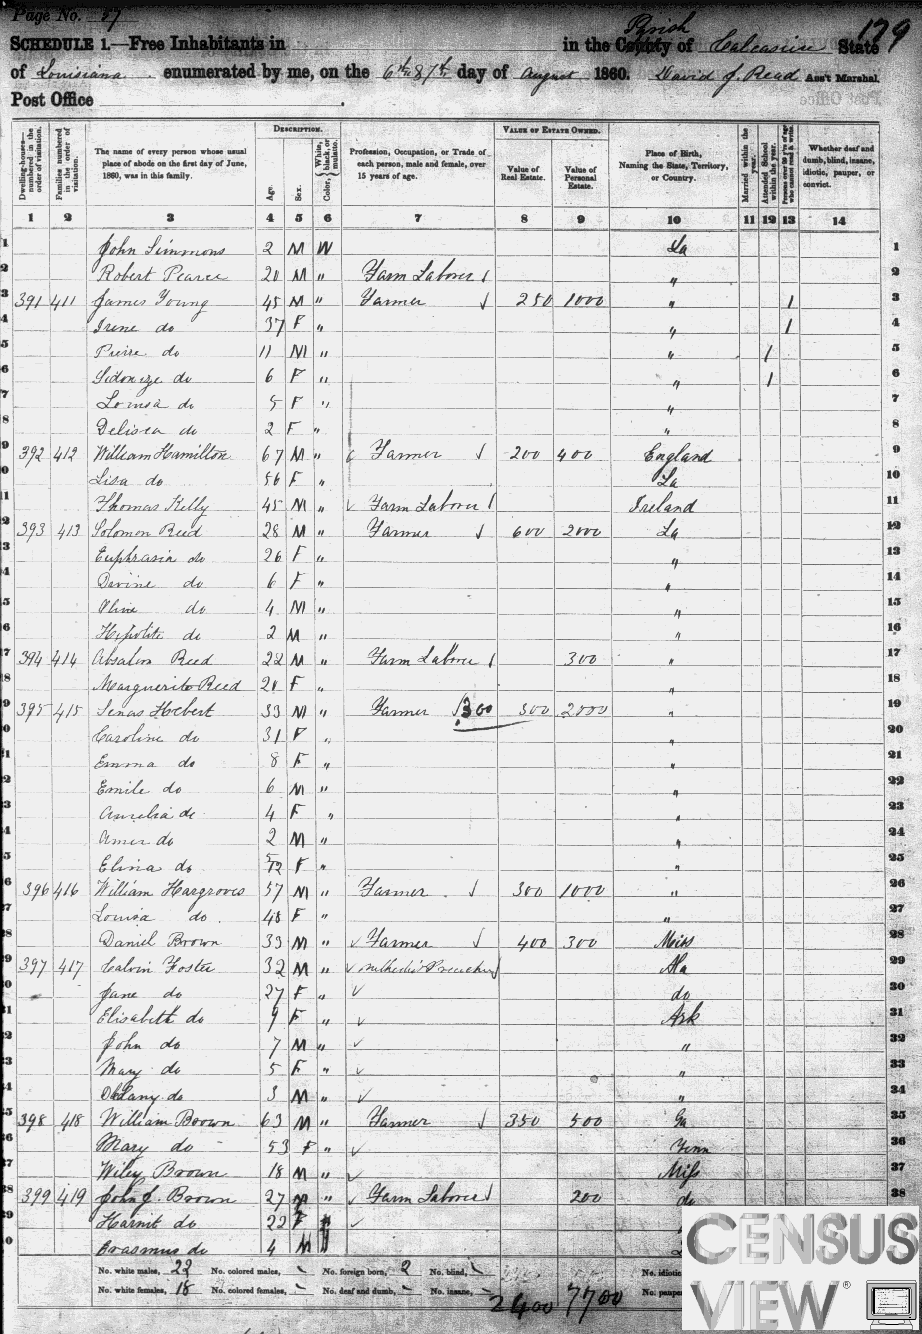 Page No. 57
179
SCHEDULE 1.—Free Inhabitants in in the County of Parish Calcasieu State
of Louisiana enumerated by me, on the 6th & 7th day of August 1860. David J. Read Ass't Marshal.
Post Office .
Dwelling-houses— numbered in the order of visitation.
Families numbered in the order of visitation.
The name of every person whose usual place of abode on the first day of June, 1860, was in this family.
DESCRIPTION.
Age.
Sex.
Color, White, black, or mulatto.
Profession, Occupation, or Trade of each person, male and female, over 15 years of age.
VALUE OF ESTATE OWNED.
Value of Real Estate.
Value of Personal Estate.
Place of Birth, Naming the State, Territory, or Country.
Married within the year.
Attended School within the year.
Persons over 20 y'rs of age who cannot read & write.
Whether deaf and dumb, blind, insane, idiotic, pauper, or convict.
1 2 3 4 5 6 7 8 9 10 11 12 13 14
1 John Simmons 2 M W La 1
2 Robert Pearce 20 M " Farm Laborer " 2
3 391 411 James Young 45 M " Farmer 250 1000 " 1 3
4 Irene do 37 F " " 1 4
5 Pierre do 11 M " " 1 5
6 Sidonize do 6 F " " 1 6
7 Louisa do 5 F " " 7
8 Delisca do 2 F " " 8
9 392 412 William Hamilton 67 M " Farmer 200 400 England 9
10 Lisa do 56 F " La 10
11 Thomas Kelly 45 M " Farm Laborer Ireland 11
12 393 413 Solomon Reed 28 M " Farmer 600 2000 La 12
13 Euphrasia do 26 F " " 13
14 Devine do 6 F " " 14
15 Olive do 4 M " " 15
16 Hipolite do 2 M " " 16
17 394 414 Absalom Reed 22 M " Farm Laborer 300 " 17
18 Marguerite Reed 20 F " " 18
19 395 415 Senas Hebert 33 M " Farmer 300 300 2000 " 19
20 Caroline do 31 F " " 20
21 Emma do 8 F " " 21
22 Emile do 6 M " " 22
23 Amelia do 4 F " " 23
24 do 2 M " " 24
25 Elina do 5/12 F " " 25
26 396 416 William Hargroves 57 M " Farmer 300 1000 " 26
27 Louisa do 48 F " " 27
28 Daniel Brown 33 M " Farmer 400 300 Miss 28
29 397 417 Calvin Foster 32 M " Methodist Preacher Ala 29
30 Jane do 27 F " do 30
31 Elisabeth do 9 F " Ark 31
32 John do 7 M " " 32
33 Mary do 5 F " " 33
34 do 3 M " " 34
35 398 418 William Brown 63 M " Farmer 350 500 Ga 35
36 Mary do 53 F " Tenn 36
37 Wiley Brown 18 M " Miss 37
38 399 419 John J. Brown 27 M " Farm Laborer 200 do 38
39 Harriet do 22 F "
40 Erasmus do 4 M "
No. white males, 22 No. colored males, - No. foreign born, 2 No. blind, - No. idiotic
No. white females, 18 No. colored females, - No. deaf and dumb, - No. insane, - 2400 7700 No. paupe
CENSUS
VIEW®